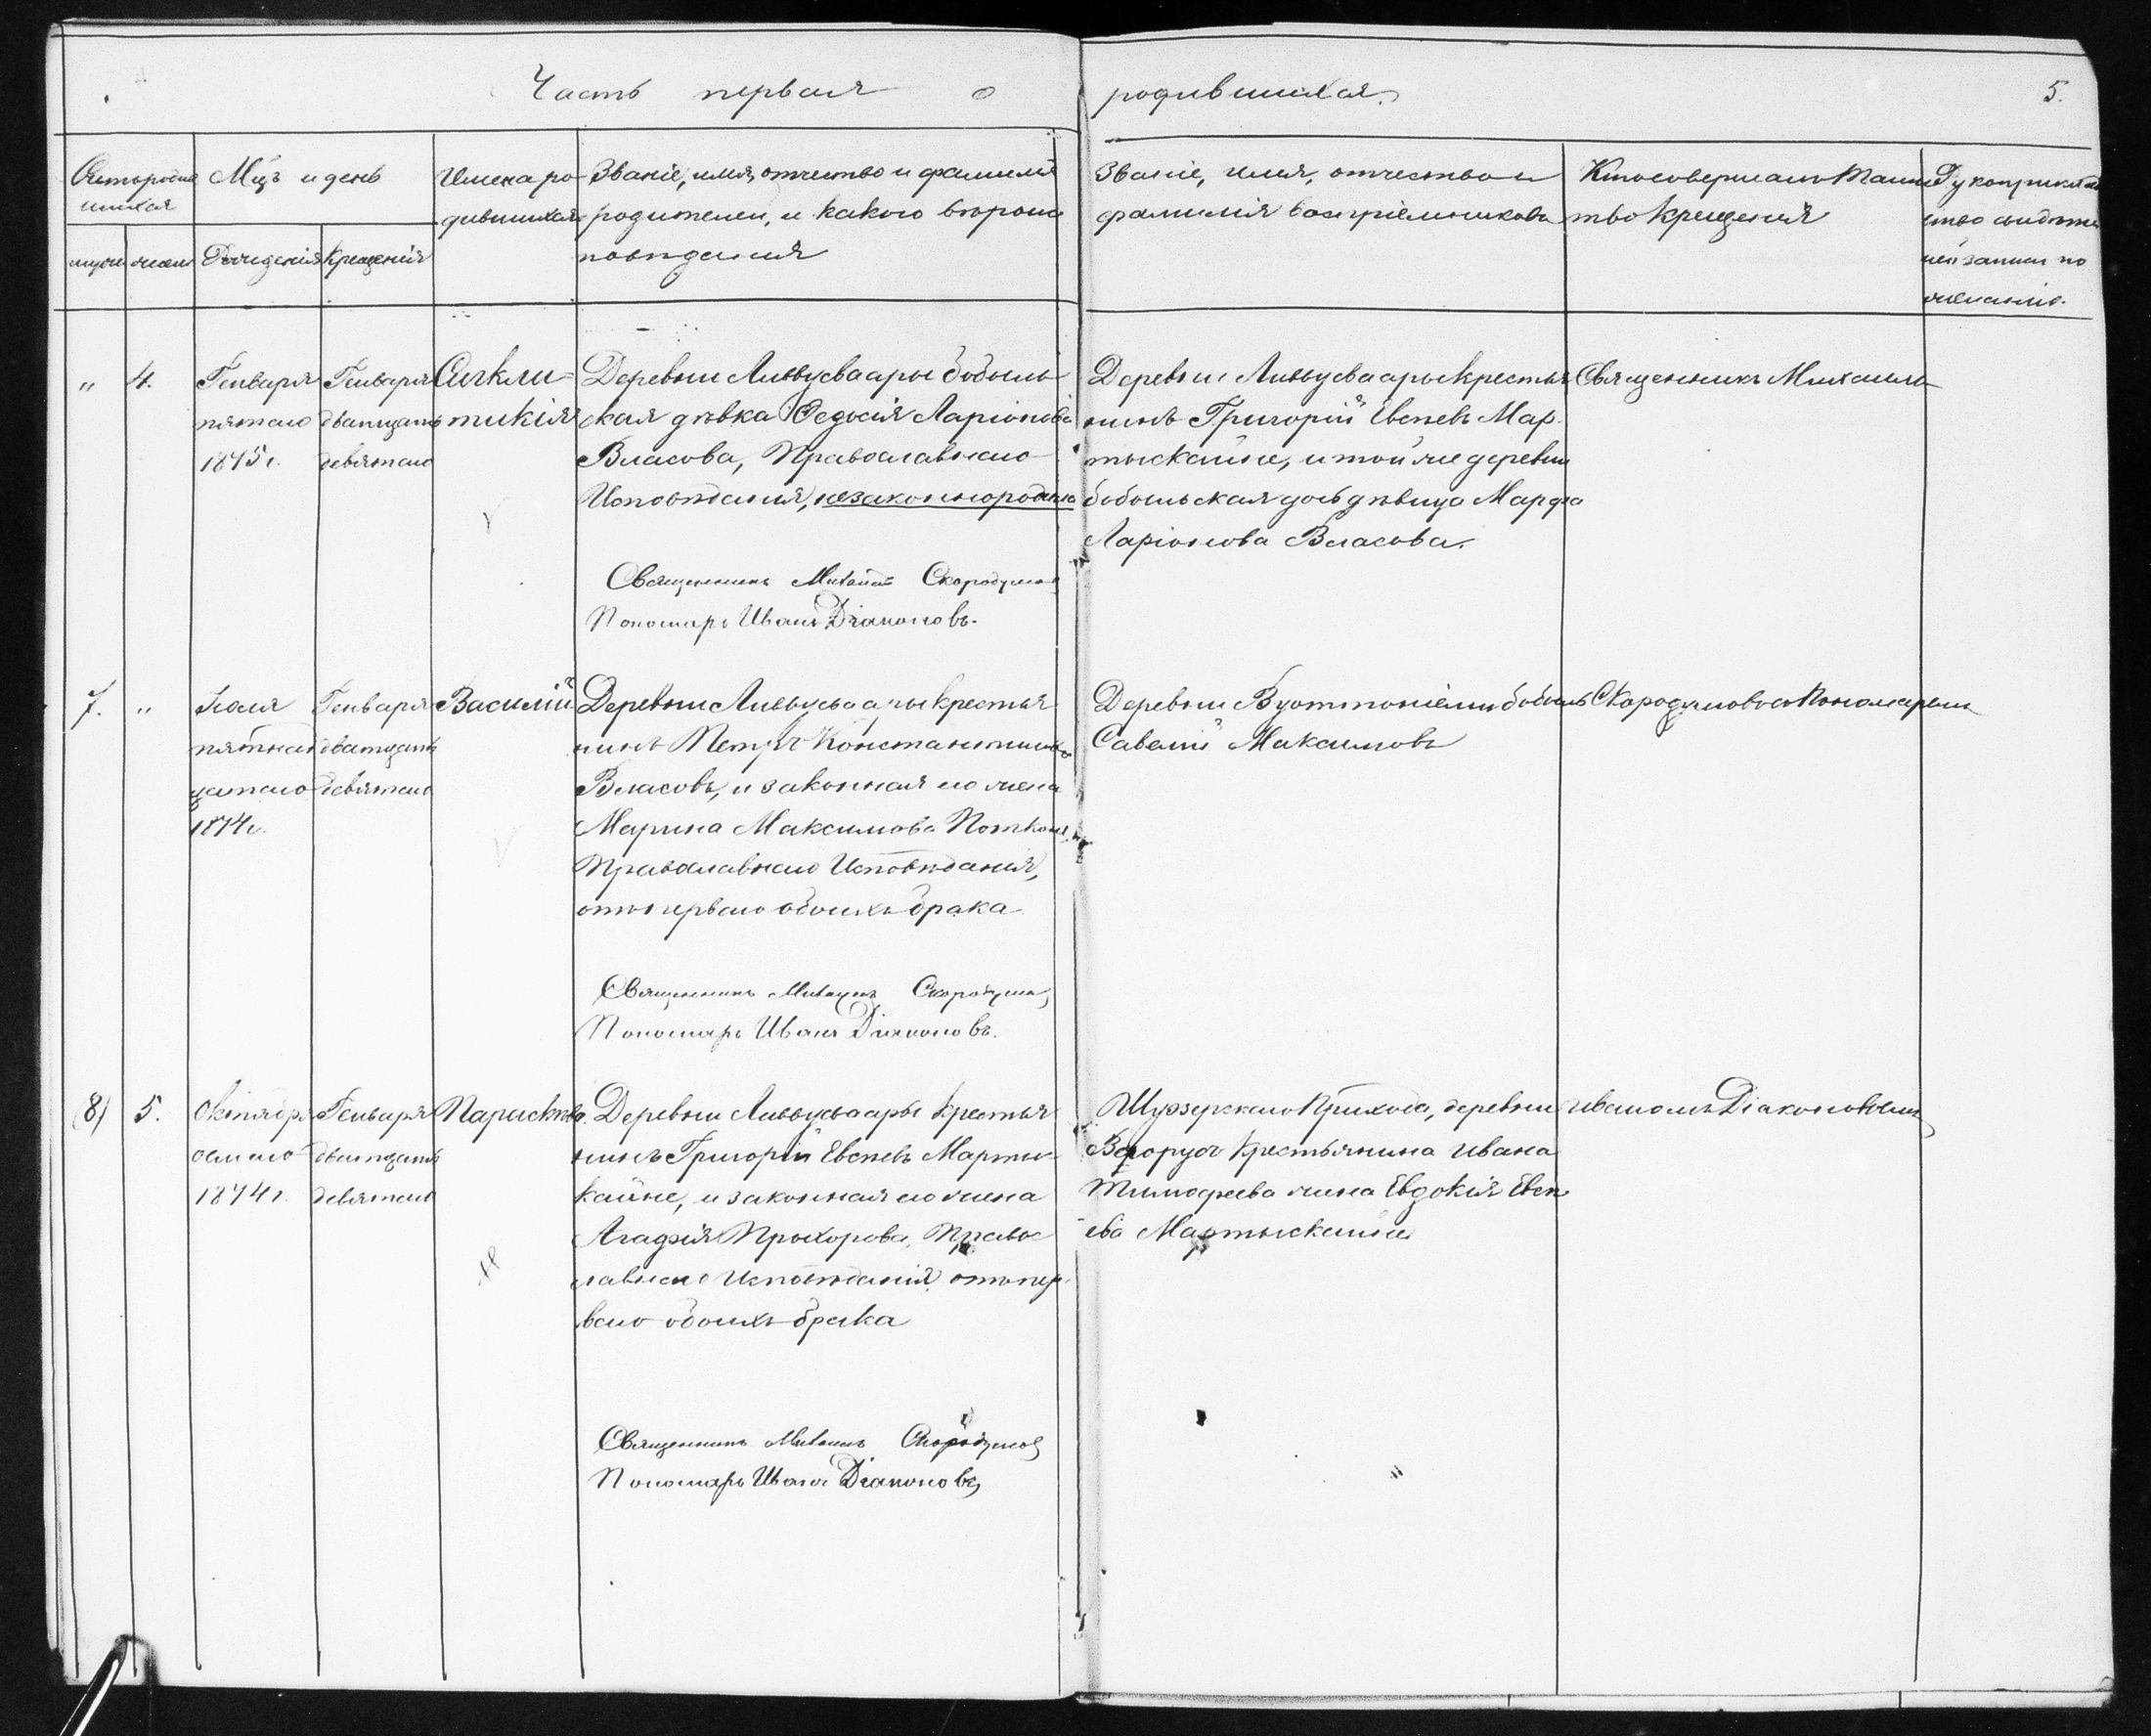 Часть первая о родившихся. 5.
Счетъ родив
шихся
Мцъ и день
Имена ро
дившихся
Званіе, имя, отчество и фамилія
родителей, и какого вѣроис
повѣданія
Званіе, имя, отчество и
фамилія воспріемниковъ
Кто совершалъ Таинс
тво Крещенія
Рукоприклад
ство свидѣте
лей записи по
желанію.
муж. жен. Рожденія Крещенія
„ 4.
Генваря
пятаго
1875 г.
Генваря
дватцать
девятаго
Сигкли=
тикія
Деревни Ливвусваары бобыль
ская дѣвка Ѳедосія Ларіонова
Власова, Православнаго
Исповѣданія, незаконнорожденная
Священникъ Михаилъ Скородумовъ
Пономарь Иванъ Dіаконовъ.
Деревни Ливвусваары крестья
нинъ Григорій Евсѣевъ Мар
тыскайне, и той же деревни
бобыльская дочь дѣвица Марфа
Ларіонова Власова.
Священникъ Михаилъ
7. „
Іюля
пятнат
цатаго
1874 г.
Генваря
дватцать
девятаго
Василій
Деревни Ливвусваары крестья
нинъ Петръ Константиновъ
Власовъ, и законная его жена
Марина Максимова
Православнаго Исповѣданія,
отъ перваго обоихъ брака
Священникъ Михаилъ Скородумовъ
Пономарь Иванъ Dіаконовъ.
Деревни бобыль
Савелій Максимовъ
Скородумовъ съ Пономаремъ
8) 5.
Октября
осмаго
1874 г.
Генваря
дватцать
девятаго
Параскева.
Деревни Ливвусваары крестья
нинъ Григорій Евсѣевъ Марты
кайне, и законная его жена
Агафія Прохорова, Правос
лавнаго Исповѣданія отъ пер
ваго обоихъ брака
Священникъ Михаилъ Скородумовъ
Пономарь Иванъ Dіаконовъ
Шуэзерскаго Прихода, деревни
Крестьянина Ивана
Тимофеева жена Евдокія Евсѣ
ева Мартыскайне
Иваномъ Dіаконовымъ